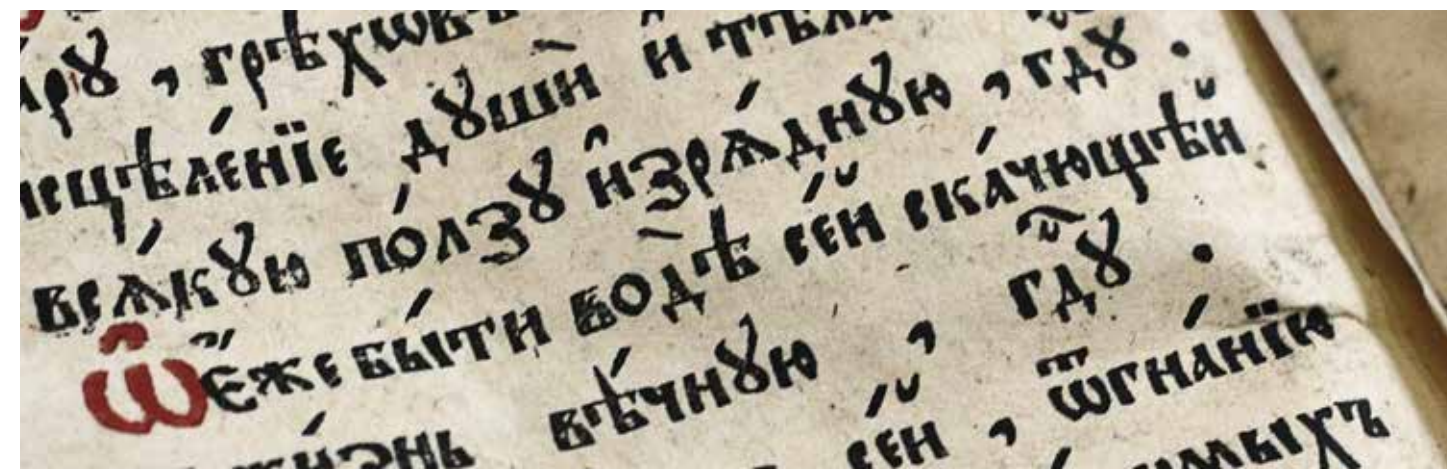 грѣхѡвъ
исцѣле́нїе дꙋшѝ и҆ тѣ́ла
всѧ́кꙋю по́лзꙋ и҆зрѧ́днꙋю , гдꙋ .
Ѽ є҆́же бы́ти водѣ̀ се́й скачю́щѣй
жи́знь вѣ́чнꙋю , гдꙋ҃ .
се́й , ѿгна́нїю